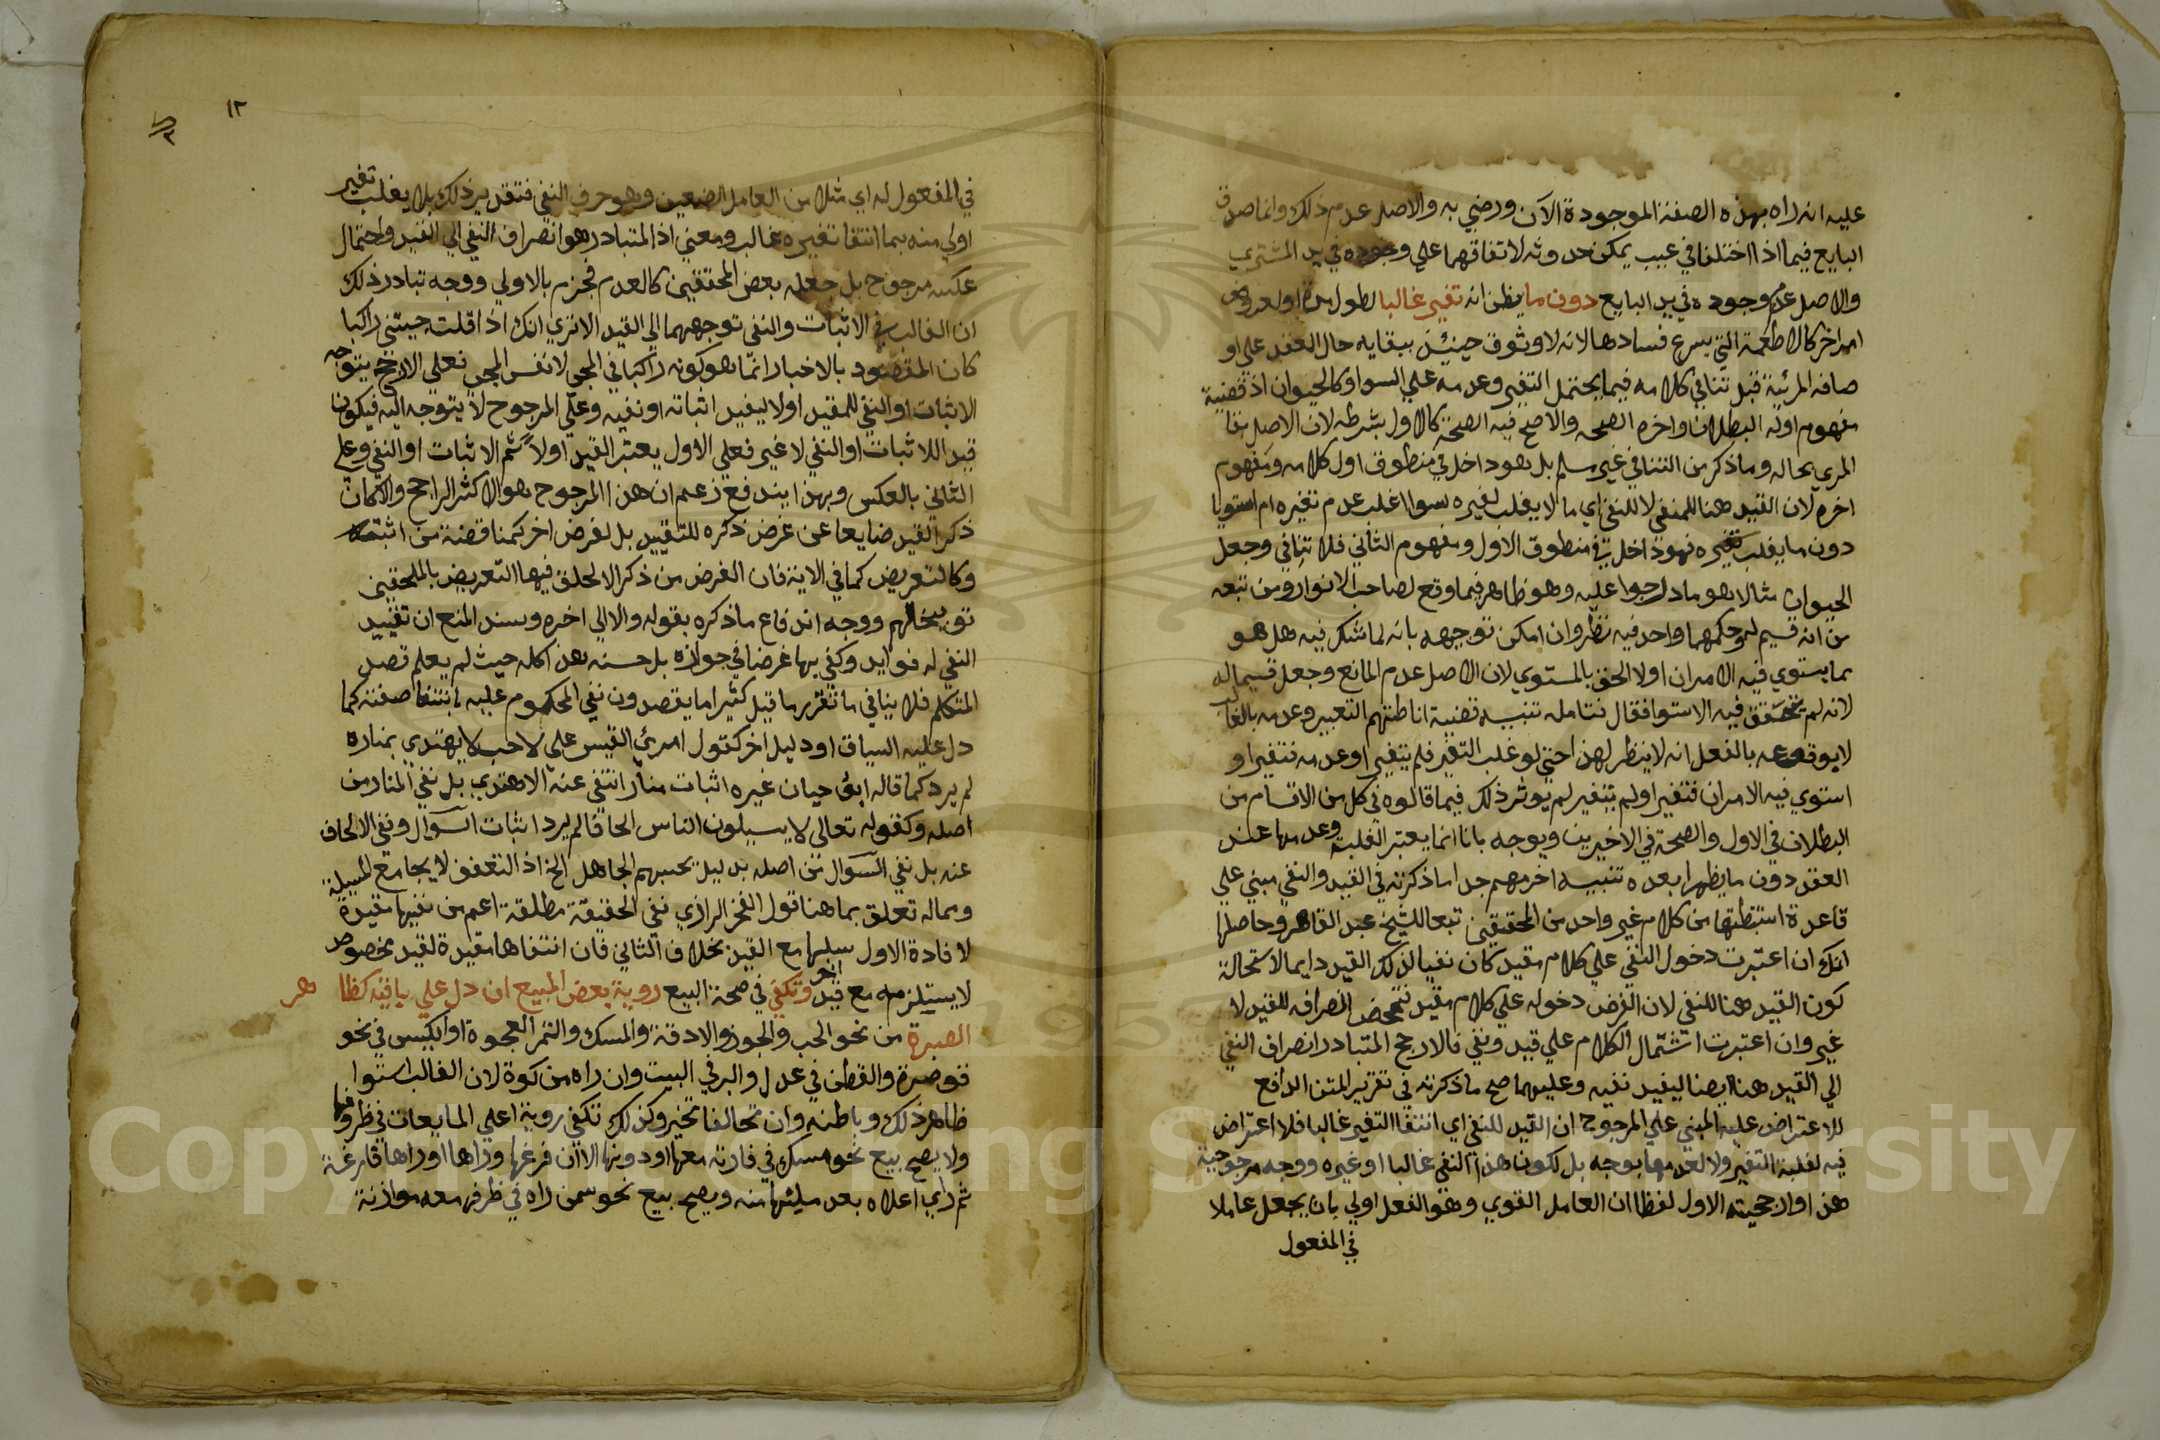 عليه انه راه بهذه الصفة الموجودة الآن ورضي به والاصل عدم ذلك وانما صدق
البايع فيما اذا اختلفا في عيب يمكن حدوثه لاتفاقهما علي وجوده في يد المشتري
والاصل عدم وجوده في يد البايع دون ما يظن انه تغير غالبا لطول مدة او لعروض
امر اخر كالاطعمة التي يسرع فسادها لانه لا وثوق حينئذ ببقايه حال العقد علي او
صافه المرئية قيل تنافي كلامه فيما يحتمل التغير وعدمه علي السوا وكالحيوان اذ قضية
مفهوم اوله البطلان واخره الصحه والاصح فيه الصحة كالاول بشرطه لان الاصل بقا
المري بحاله وما ذكر من التنافي غير مسلم بل هو داخل في منطوق اول كلامه ومفهوم
اخره لان القيد هنا للمنفي لا للنفي اي ما لا يغلب تغيره سوا اغلب عدم تغيره ام استويا
دون ما يغلب تغيره فهو داخل في منطوق الاول ومفهوم الثاني فلا تنافي وجعل
الحيوان مثالا هو ما درجوا عليه وهو ظاهر فيما وقع لصاحب الانوار ومن تبعه
من انه قسيم له وحكمهما واحد فيه نظر وان امكن توجيهه بانه لما شك فيه هل هو
مما يستوي فيه الامران اولا الحق بالمستوي لان الاصل عدم المانع وجعل قسيما له
لانه لم يتحقق فيه الاستوا فقال فتامله تنبيه قضية اناطتهم التغيير وعدمه بالغالب
لا بوقوعه بالفعل انه لا ينظر لهذا حتي لو غلب التغير فلم يتغير او عدمه فتغير او
استوي فيه الامران فتغير اولم يتغير لم يوثر ذلك فيما قالوه في كل من الاقسام من
البطلان في الاول والصحة في الاخيرين ويوجه بانا انما يعتبر الغلبة وعدمها عند
العقد دون ما يظهر بعده تنبيه اخر مهم جدا ما ذكرته في القيد والنفي مبني علي
قاعدة استنبطتها من كلام غير واحد من المحققين تبعا للشيخ عبد القاهر وحاصلها
انك ان اعتبرت دخول النفي علي كلام مقيد كان نفيا لذلك القيد دايما لاستحالة
كون القيد هنا للنفي لان الفرض دخوله علي كلام مقيد فتمحض انصرافه للقيد لا
غير وان اعتبرت اشتمال الكلام علي قيد ونفي فالارجح المتبادر انصراف النفي
الي القيد هنا ايضا ليفيد نفيه وعليهما صح ما ذكرته في تقرير المتن الدافع
للاعتراض عليه المبني علي المرجوح ان القيد للنفي اي انتفا التغير غالبا فلا اعتراض
فيه لغلبة التغير ولا لعدمها بوجه بل لكون هذا النفي غالبا او غيره ووجه مرجوحية
هذا وارجحيته الاول لفظا ان العامل القوي وهو الفعل اولي بان يجعل عاملا
في المفعول
١٢
في المفعول له اي مثلا من العامل الضعيف وهو حرف النفي فتقدير ذلك بلا يغلب تغير
اولي منه بما انتفا تغيره غالب ومعني اذ المتبادر هو انصراف النفي الي القيد واحتمال
عكسه مرجوح بل جعله بعض المحققين كالعدم فجزم بالاولي ووجه تبادر ذلك
ان الغالب في الاثبات والنفي توجههما الي القيد الاتري انك اذا قلت جيتني راكبا
كان المقصود بالاخبار انما هو كونه راكبا في المجي لا نفس المجي فعلي الارجح يتوجه
الاثبات او النفي للمقيد اولا ليفيد اثباته او نفيه وعلي المرجوح لا يتوجه اليه فيكون
قيد اللاثبات او النفي لا غير فعلي الاول يعتبر القيد اولا ثم الاثبات او النفي وعلي
الثاني بالعكس وبهذا يندفع زعم ان هذا المرجوح هو الاكثر الراجح والا كان
ذكر القيد ضايعا عن غرض ذكره للتقييد بل لغرض اخر كمناقضة من اثبته
وكالتعريض كما في الاية فان الغرض من ذكر الالحاف فيها التعريض بالملحقين
توبيخا لهم ووجه اندفاع ما ذكره بقوله والا الي اخره وسند المنع ان تقييد
النفي له فوايد وكفي بها غرضا في جوازه بل حسنه هذا كله حيث لم يعلم قصد
المتكلم فلا ينافي ما تقرر ما قيل كثيرا ما يقصدون نفي المحكوم عليه بانتفا صفته كما
دل عليه السياق او دليل اخر كقول امرئ القيس علي لاحب لا يهتدي بمناره
لم يرد كما قاله ابو حيان غيره اثبات منار انتفي عنه الاهتدي بل نفي المنار من
اصله وكقوله تعالي لا يسيلون الناس الحافا لم يرد اثبات السوال ونفي الالحاف
عنه بل نفي السوال من اصله بدليل يحسبهم الجاهل الخ اذ التعفف لا يجامع المسيلة
ومما له تعلق بما هنا قول الفخر الرازي نفي الحقيقة مطلقة اعم من نفيها مقيدة
لافادة الاول سلبها مع القيد بخلاف الثاني فان انتفاها مقيدة لقيد مخصوص
لا يستلزمه مع قيد اخر وتكفي في صحة البيع روية بعض المبيع ان دل علي باقيه كظاهر
الصبرة من نحو الحب والجوز والادقة والمسك والتمر العجوة او الكبيس في نحو
قوصرة والقطن في عدل والبر في البيت وان راه من كوة لان الغالب استوا
ظاهر ذلك وباطنه وان تخالفا تخير وكذلك تكفي روية اعلي المايعات في ظروفها
ولا يصح بيع نحو مسك في فارته معها او دونها الا ان فرغها وراها او راها فارغة
ثم راي اعلاه بعد مليها منه ويصح بيع نحو سمن راه في ظرفه معه موازنة